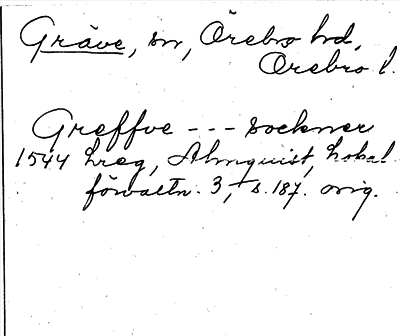 Gräve, sn, Örebro hd,
Örebro l.
Greffve --- sockner
1544 hreg, Almquist, Lokal
förvaltn. 3, s. 187. orig.